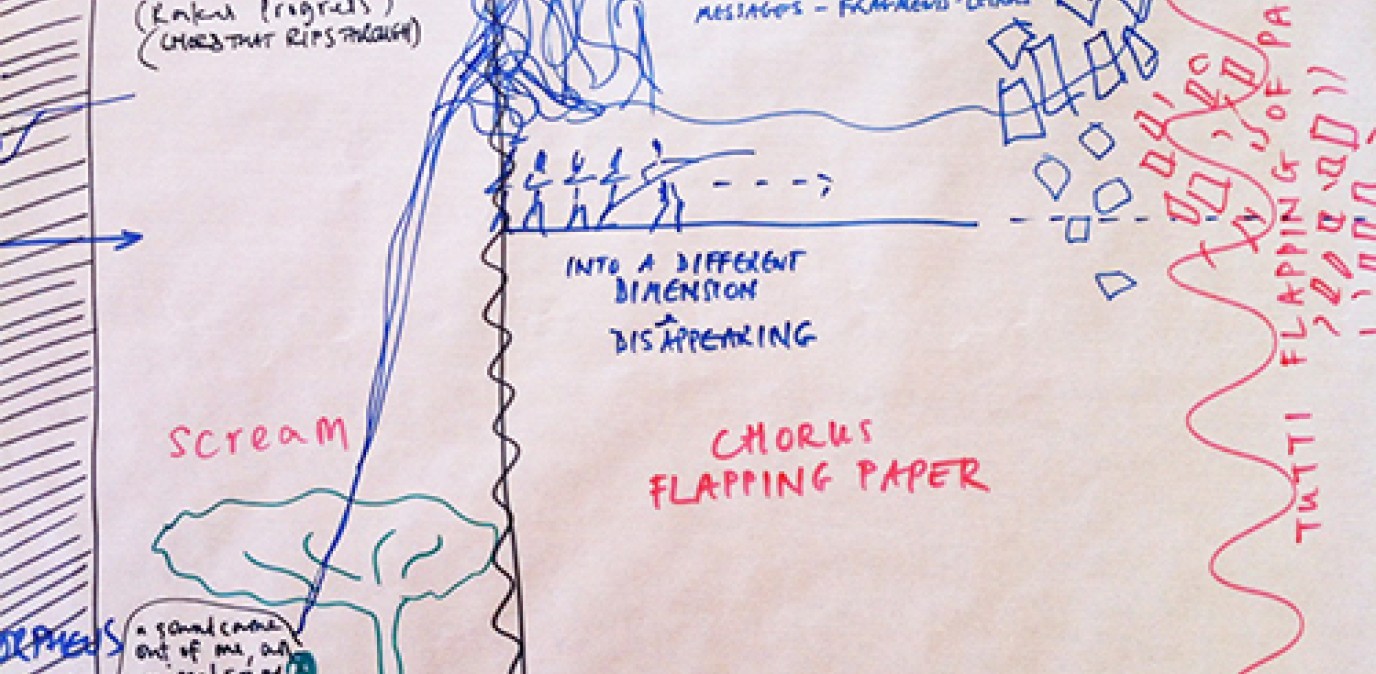 (Rakes Progress)
(CHORD THAT RIPS THROUGH)
MESSAGES - FRAGMENTS -
INTO A DIFFERENT
DIMENSION
DISAPPEARING
SCREAM
CHORUS
FLAPPING PAPER
TUTTI FLAPPING OF PA
ORPHEUS
a sound came
out of me, an